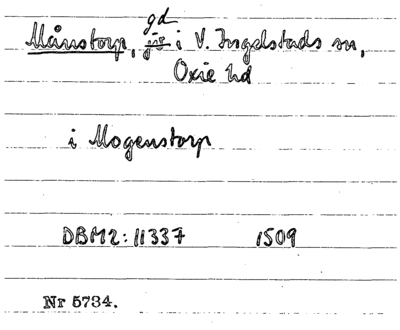 Månstorp, gd i V. Ingelstads sn,
Oxie hd
i Mogenstorp
DBM2: 11337 1509
Nr 5734.